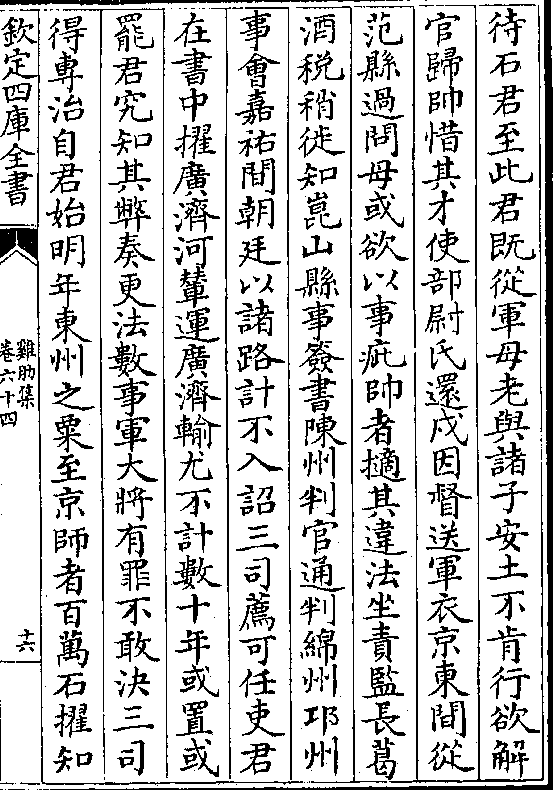 待石君至此君既從軍母老與諸子安土不肯行欲解
官歸帥惜其才使部尉氏還戍因督送軍衣京東間從
范縣過問母或欲以事疵帥者擿其違法坐責監長葛
酒稅稍徙知崑山縣事簽書陳州判官通判綿州邛州
事會嘉祐間朝廷以諸路計不入詔三司薦可任吏君
在書中擢廣濟河輦運廣濟輸尤不計數十年或置或
罷君究知其弊奏更法數事軍大將有罪不敢決三司
得專治自君始明年東州之粟至京師者百萬石擢知
欽定四庫全書
雞肋集
卷六十四
十六